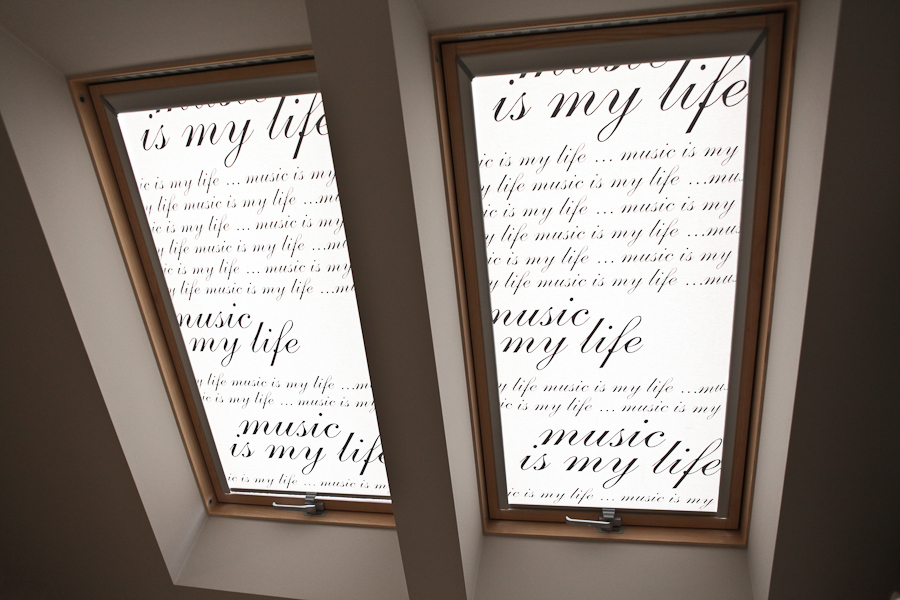 music
is my life
ic is my life ... music is my
y life music is my life ...mu
ic is my life ... music is my
y life music is my life ...m
ic is my life ... music is my
y life music is my life ...mu
music
my life
y life music is my life ...mu
ic is my life ... music is my
music
is my life
ic is my life ... music is m
music
is my life
ic is my life ... music is my
y life music is my life ...mus
ic is my life ... music is my
y life music is my life ...mus
ic is my life ... music is my
y life music is my life ...mus
music
my life
y life music is my life ...mus
ic is my life ... music is my
music
is my life
ic is my life ... music is my